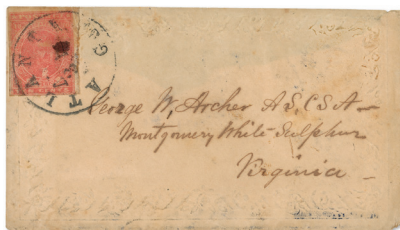 ATLANTA GA
George W, Archer A S, C S A -
Montgomery White Sulphur
Virginia -